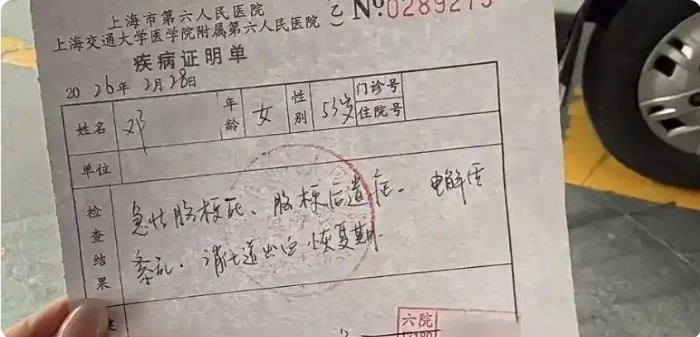 上海市第六人民医院
上海交通大学医学院附属第六人民医院
乙 No.0289275
疾病证明单
2026年2月28日
姓名 邓 年龄 女 性别 53岁 门诊号 住院号
单位
检查结果
急性脑梗死、脑梗后遗症、电解质
紊乱、消化道出血恢复期
六院